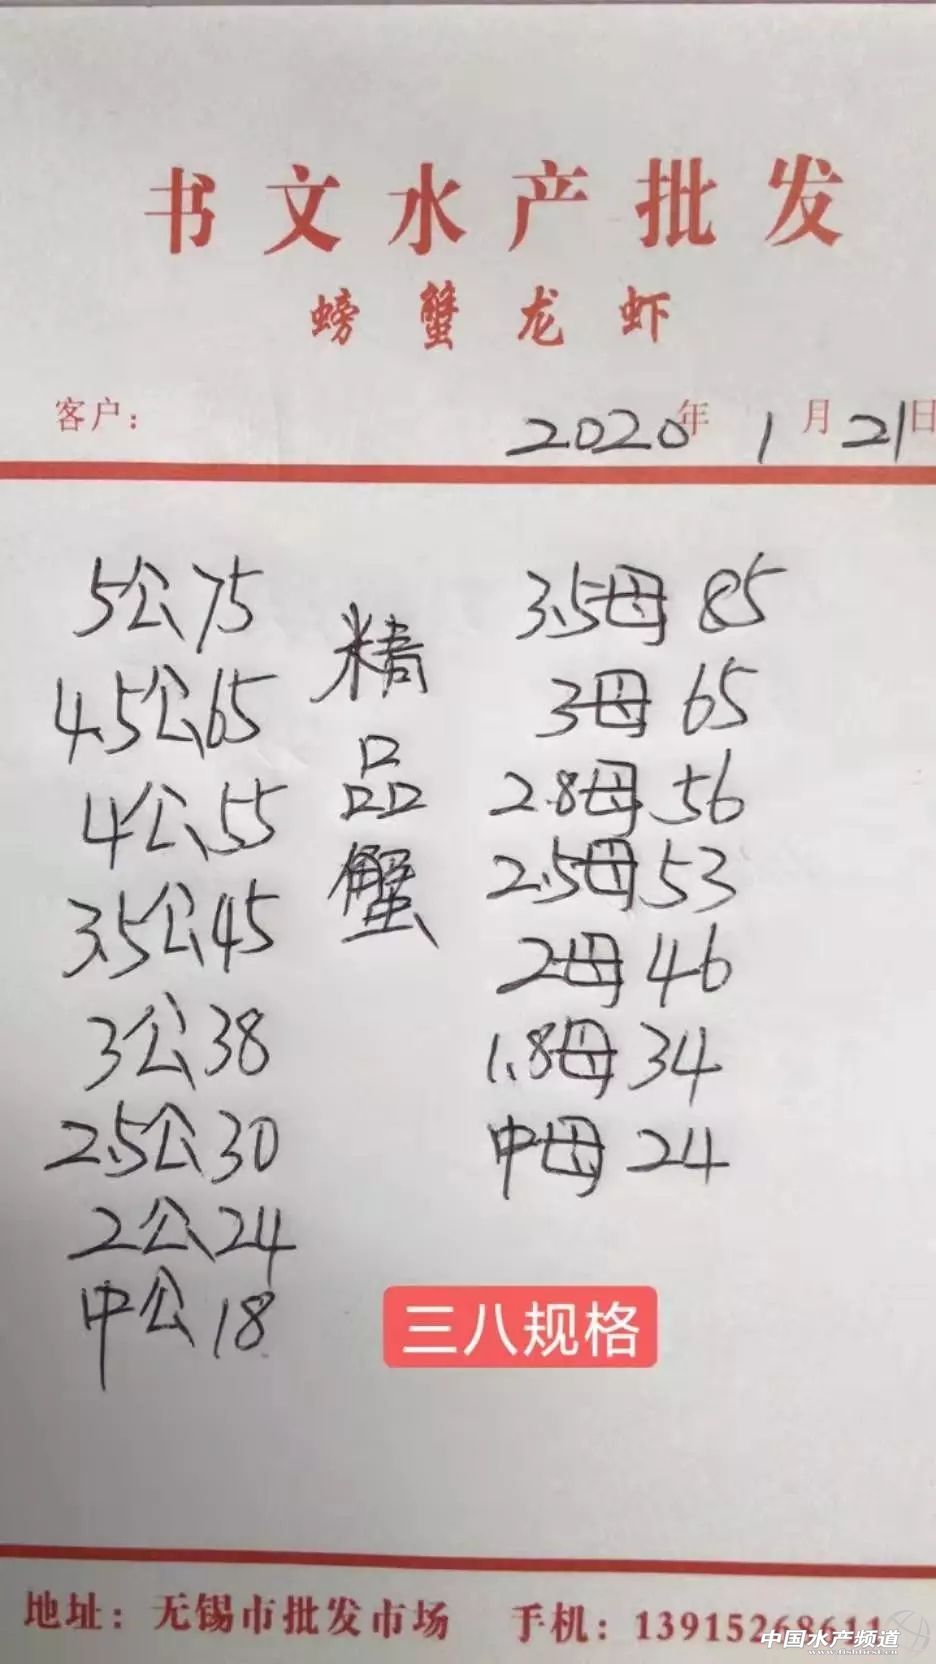 书文水产批发
螃蟹龙虾
客户：
2020年1月21日
5公75
4.5公65
4公55
3.5公45
3公38
2.5公30
2公24
中公18
精品蟹
3.5母85
3母65
2.8母56
2.5母53
2母46
1.8母34
中母24
三八规格
地址：无锡市批发市场 手机：13915268611
中国水产频道
www.fishfirst.cn